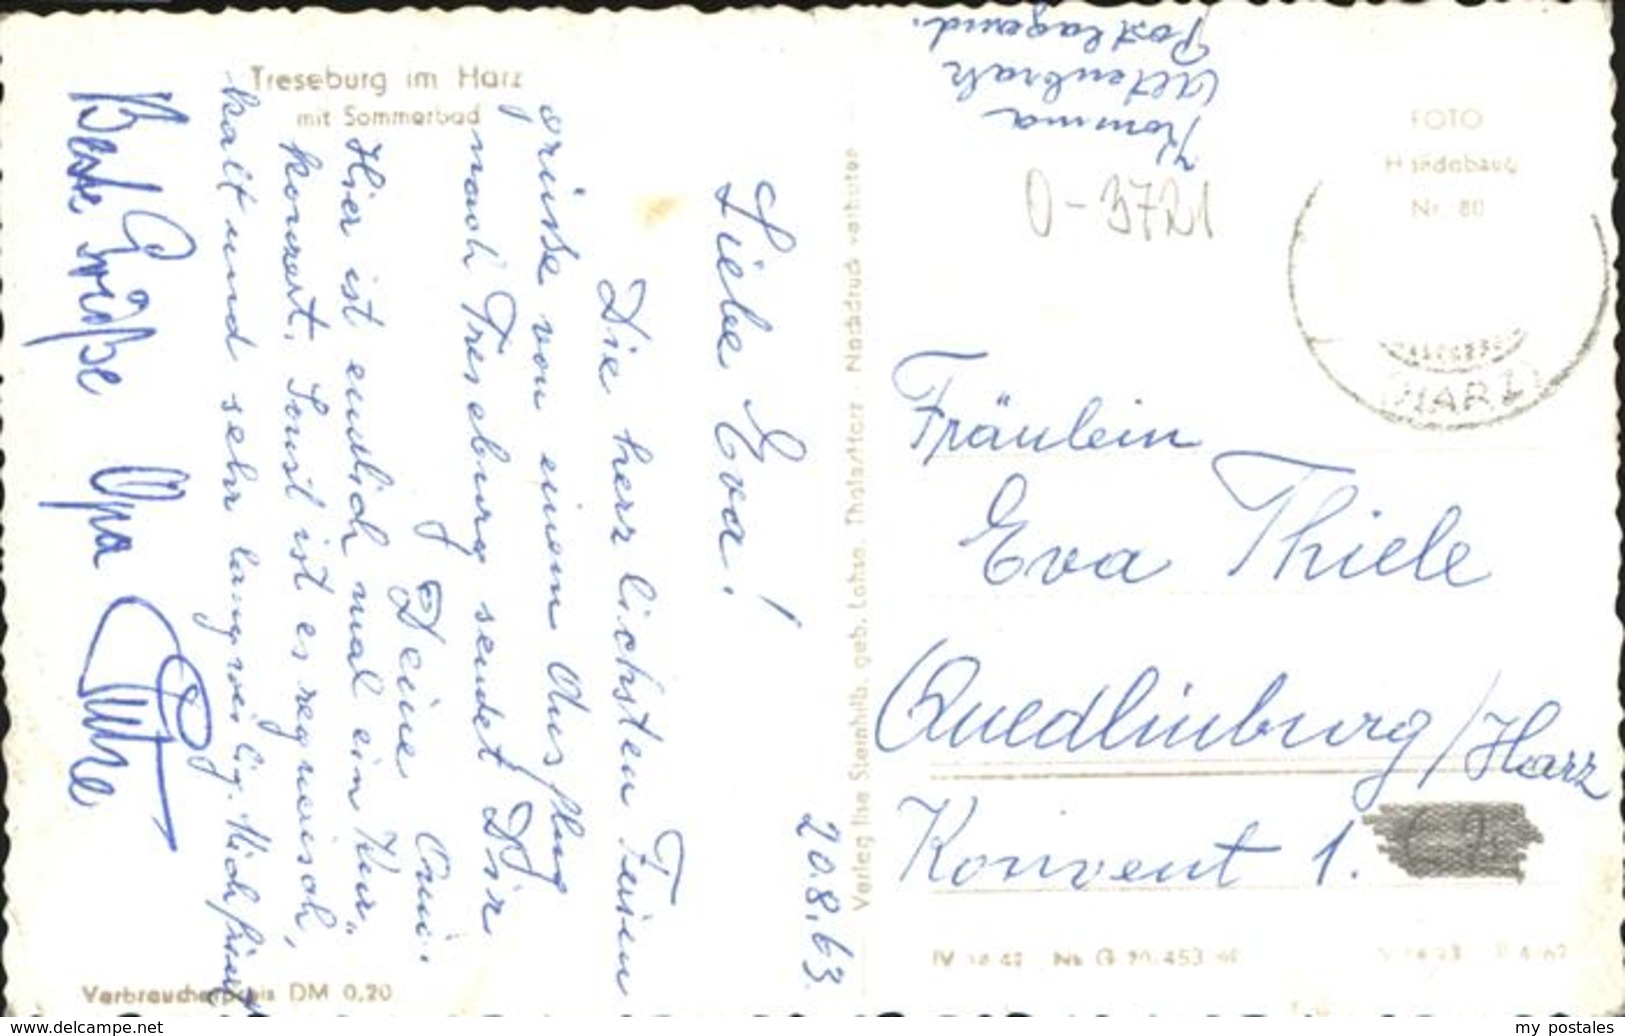 Treseburg im Harz
mit Sommerbad
20.8.63.
Liebe Eva!
Die herzlichsten Ferien
grüße von einem Ausflug
nach Treseburg sendet Dir
Deine Omi.
Hier ist endlich mal ein Kur
konzert. Sonst ist es regnerisch,
kalt und sehr langweilig. Mich
Beste Grüße Opa
Verbraucherpreis DM 0,20
Verlag Ilse Steinhilb, geb. Lohse, Thale/Harz - Nachdruck verboten
Altenbrak
Postlagernd.
0-3721
FOTO
Handabzug
Nr. 80
(HARZ)
Fräulein
Eva Thiele
Quedlinburg/Harz
Konvent 1.
my postales
www.delcampe.net